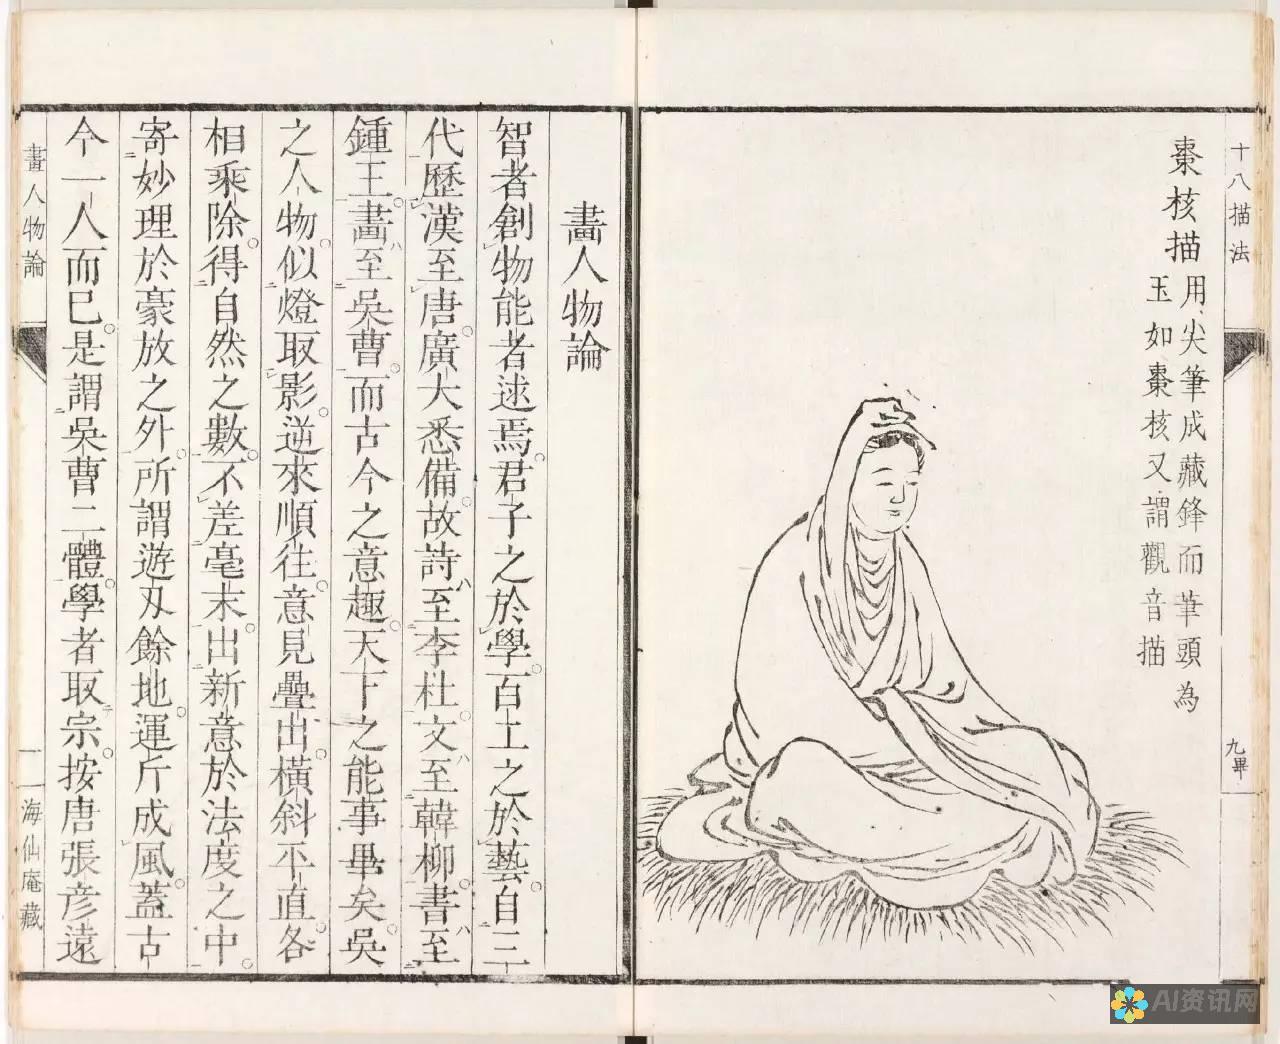 十八描法
九畢
棗核描
用尖筆成藏鋒而筆頭為
玉如棗核又謂觀音描
畫人物論
智者創物能者述焉君子之於學百工之於藝自三
代歷漢至唐廣大悉備故詩至李杜文至韓柳書至
鍾王畫至吳曹而古今之意趣天下之能事畢矣吳
之人物似燈取影逆來順往意見疊出橫斜平直各
相乘除得自然之數不差毫末出新意於法度之中
寄妙理於豪放之外所謂遊刃餘地運斤成風蓋古
今一人而已是謂吳曹二體學者取宗按唐張彥遠
畫人物論
一
海仙庵藏
AI资讯网